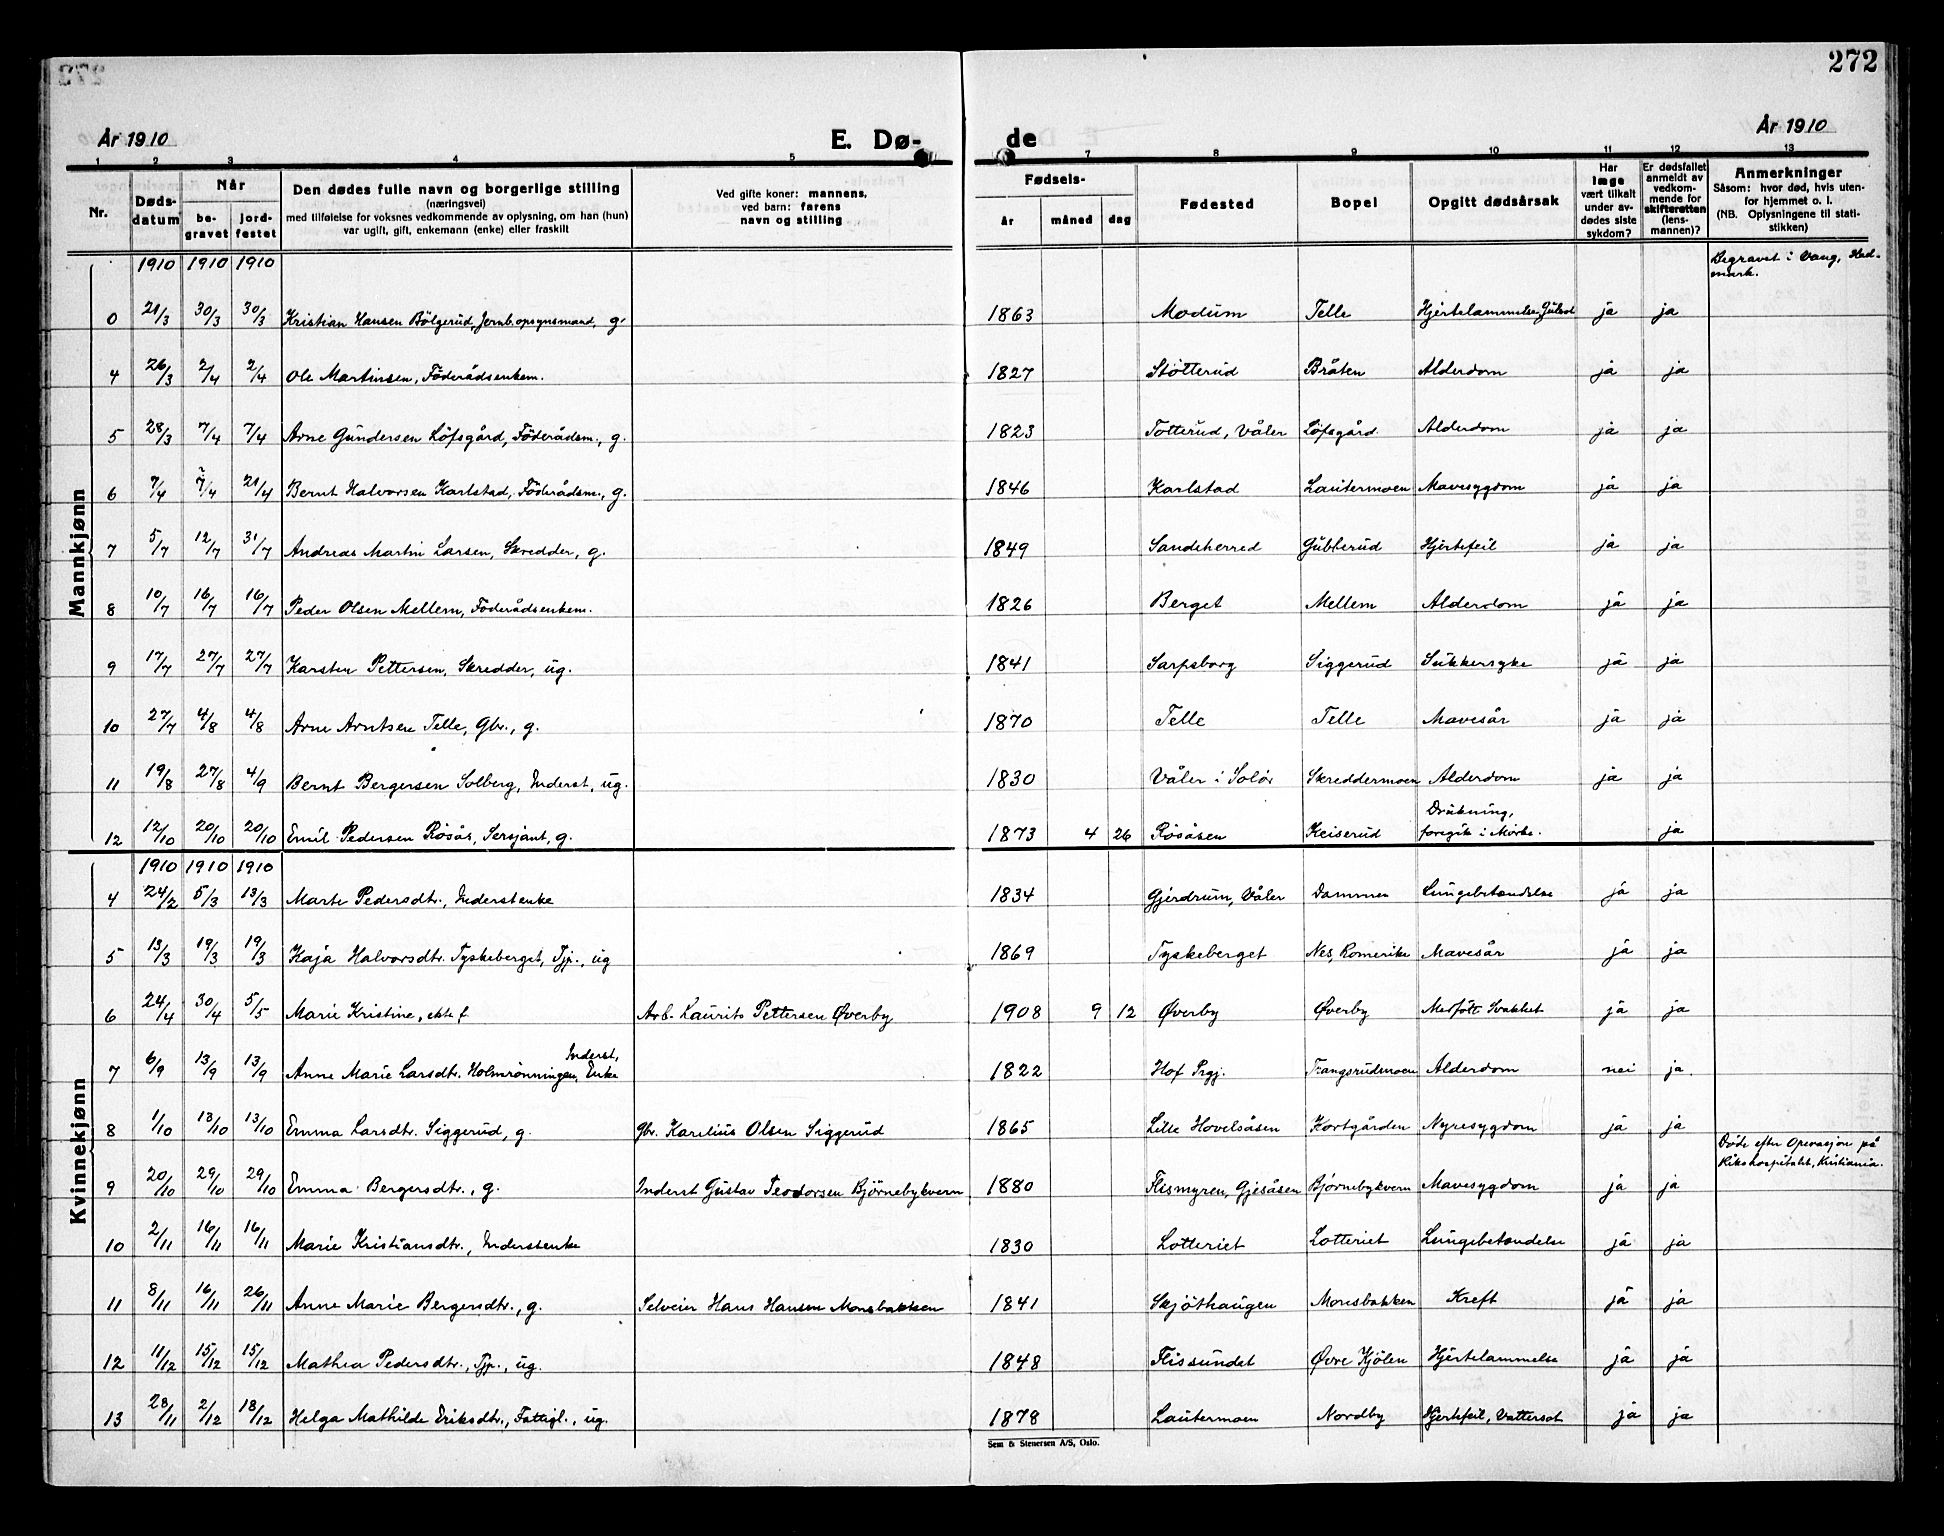 272
År 1910 E. Dø- de År 1910
1 2 3 4 5 7 8 9 10 11 12 13
Nr. Døds-datum Når be-gravet jord-festet Den dødes fulle navn og borgerlige stilling (næringsvei) med tilføielse for voksnes vedkommende av oplysning, om han (hun) var ugift, gift, enkemann (enke) eller fraskilt Ved gifte koner: mannens, ved barn: farens navn og stilling Fødsels- år måned dag Fødested Bopel Opgitt dødsårsak Har læge vært tilkalt under av-dødes siste sykdom? Er dødsfallet anmeldt av vedkom-mende for skifteretten (lens-mannen)? Anmerkninger Såsom: hvor død, hvis uten-for hjemmet o. l. (NB. Oplysningene til stati-stikken)
Mannkjønn
1910 1910 1910 Begravet i Vang, Hed-mark.
0 21/3 30/3 30/3 Kristian Hansen Bölgerud, Jernb.opsynsmand, g. 1863 Modum Telle Hjertelammelse, Gulsot ja ja
4 26/3 2/4 2/4 Ole Martinsen, Föderådsenkem. 1827 Stötterud Bråten Alderdom ja ja
5 28/3 7/4 7/4 Arne Gundersen Löfsgård, Föderådsm., g. 1823 Totterud, Våler Löfsgård Alderdom ja ja
6 7/4 ?/4 21/4 Bernt Halvorsen Karlstad, Föderådsm., g. 1846 Karlstad Lautermoen Mavesygdom ja ja
7 5/7 12/7 31/7 Andreas Martin Larsen, Skredder, g. 1849 Sandeherred Gubberud Hjertefeil ja ja
8 10/7 16/7 16/7 Peder Olsen Mellem, Föderådsenkem. 1826 Berget Mellem Alderdom ja ja
9 17/7 27/7 27/7 Karsten Pettersen, Skredder, ug. 1841 Sarpsborg Siggerud Sukkersyke ja ja
10 27/7 4/8 4/8 Arne Arntsen Telle, Gbr., g. 1870 Telle Telle Mavesår ja ja
11 19/8 27/8 4/9 Bernt Bergersen Solberg, Inderst, ug. 1830 Våler i Solör Skreddermoen Alderdom ja ja
12 12/10 20/10 20/10 Emil Pedersen Rösås, Sersjant, g. 1873 4 26 Rösåsen Keiserud Drukning, foregik i Mörke. ja
Kvinnekjønn
1910 1910 1910
4 24/2 5/3 13/3 Marte Pedersdtr., Inderstenke 1834 Gjerdrum, Våler Dammen Lungebetændelse ja ja
5 13/3 19/3 19/3 Kaja Halvorsdtr. Tyskeberget, Tjp., ug 1869 Tyskeberget Nes, Romerike Mavesår ja ja
6 24/4 30/4 5/5 Marie Kristine, ekte f. Arb. Laurits Pettersen Øverby 1908 9 12 Øverby Øverby Medfött Svakhet ja ja
7 6/9 13/9 13/9 Anne Marie Larsdtr. Holmrönningen, Inderst, Enke 1822 Hof Prgj. Trangsrudmoen Alderdom nei ja.
8 1/10 13/10 13/10 Emma Larsdtr. Siggerud, g. Gbr. Karelius Olsen Siggerud 1865 Lille Hovelsåsen Kortgården Nyresygdom ja ja
9 20/10 29/10 29/10 Emma Bergersdtr., g. Inderst Gustav Teodorsen Björnebykvern 1880 Flismyren, Gjesåsen Björnebykvern Mavesygdom ja ja Döde efter Operasjon på Rikshospitalet, Kristiania.
10 2/11 16/11 16/11 Marie Kristiansdtr., Inderstenke 1830 Lotteriet Lotteriet Lungebetændelse ja ja
11 8/11 16/11 26/11 Anne Marie Bergersdtr., g. Selveier Hans Hansen Monsbakken 1841 Skjöthaugen Monsbakken Kreft ja ja
12 11/12 15/12 15/12 Mathea Pedersdtr., Tjp., ug. 1848 Flissundet Øvre Kjölen Hjertelammelse ja ja
13 28/11 2/12 18/12 Helga Mathilde Eriksdtr., Fattigl., ug. 1878 Lautermoen Nordby Hjertefeil, Vattersot ja ja
Sem & Stenersen A/S, Oslo.